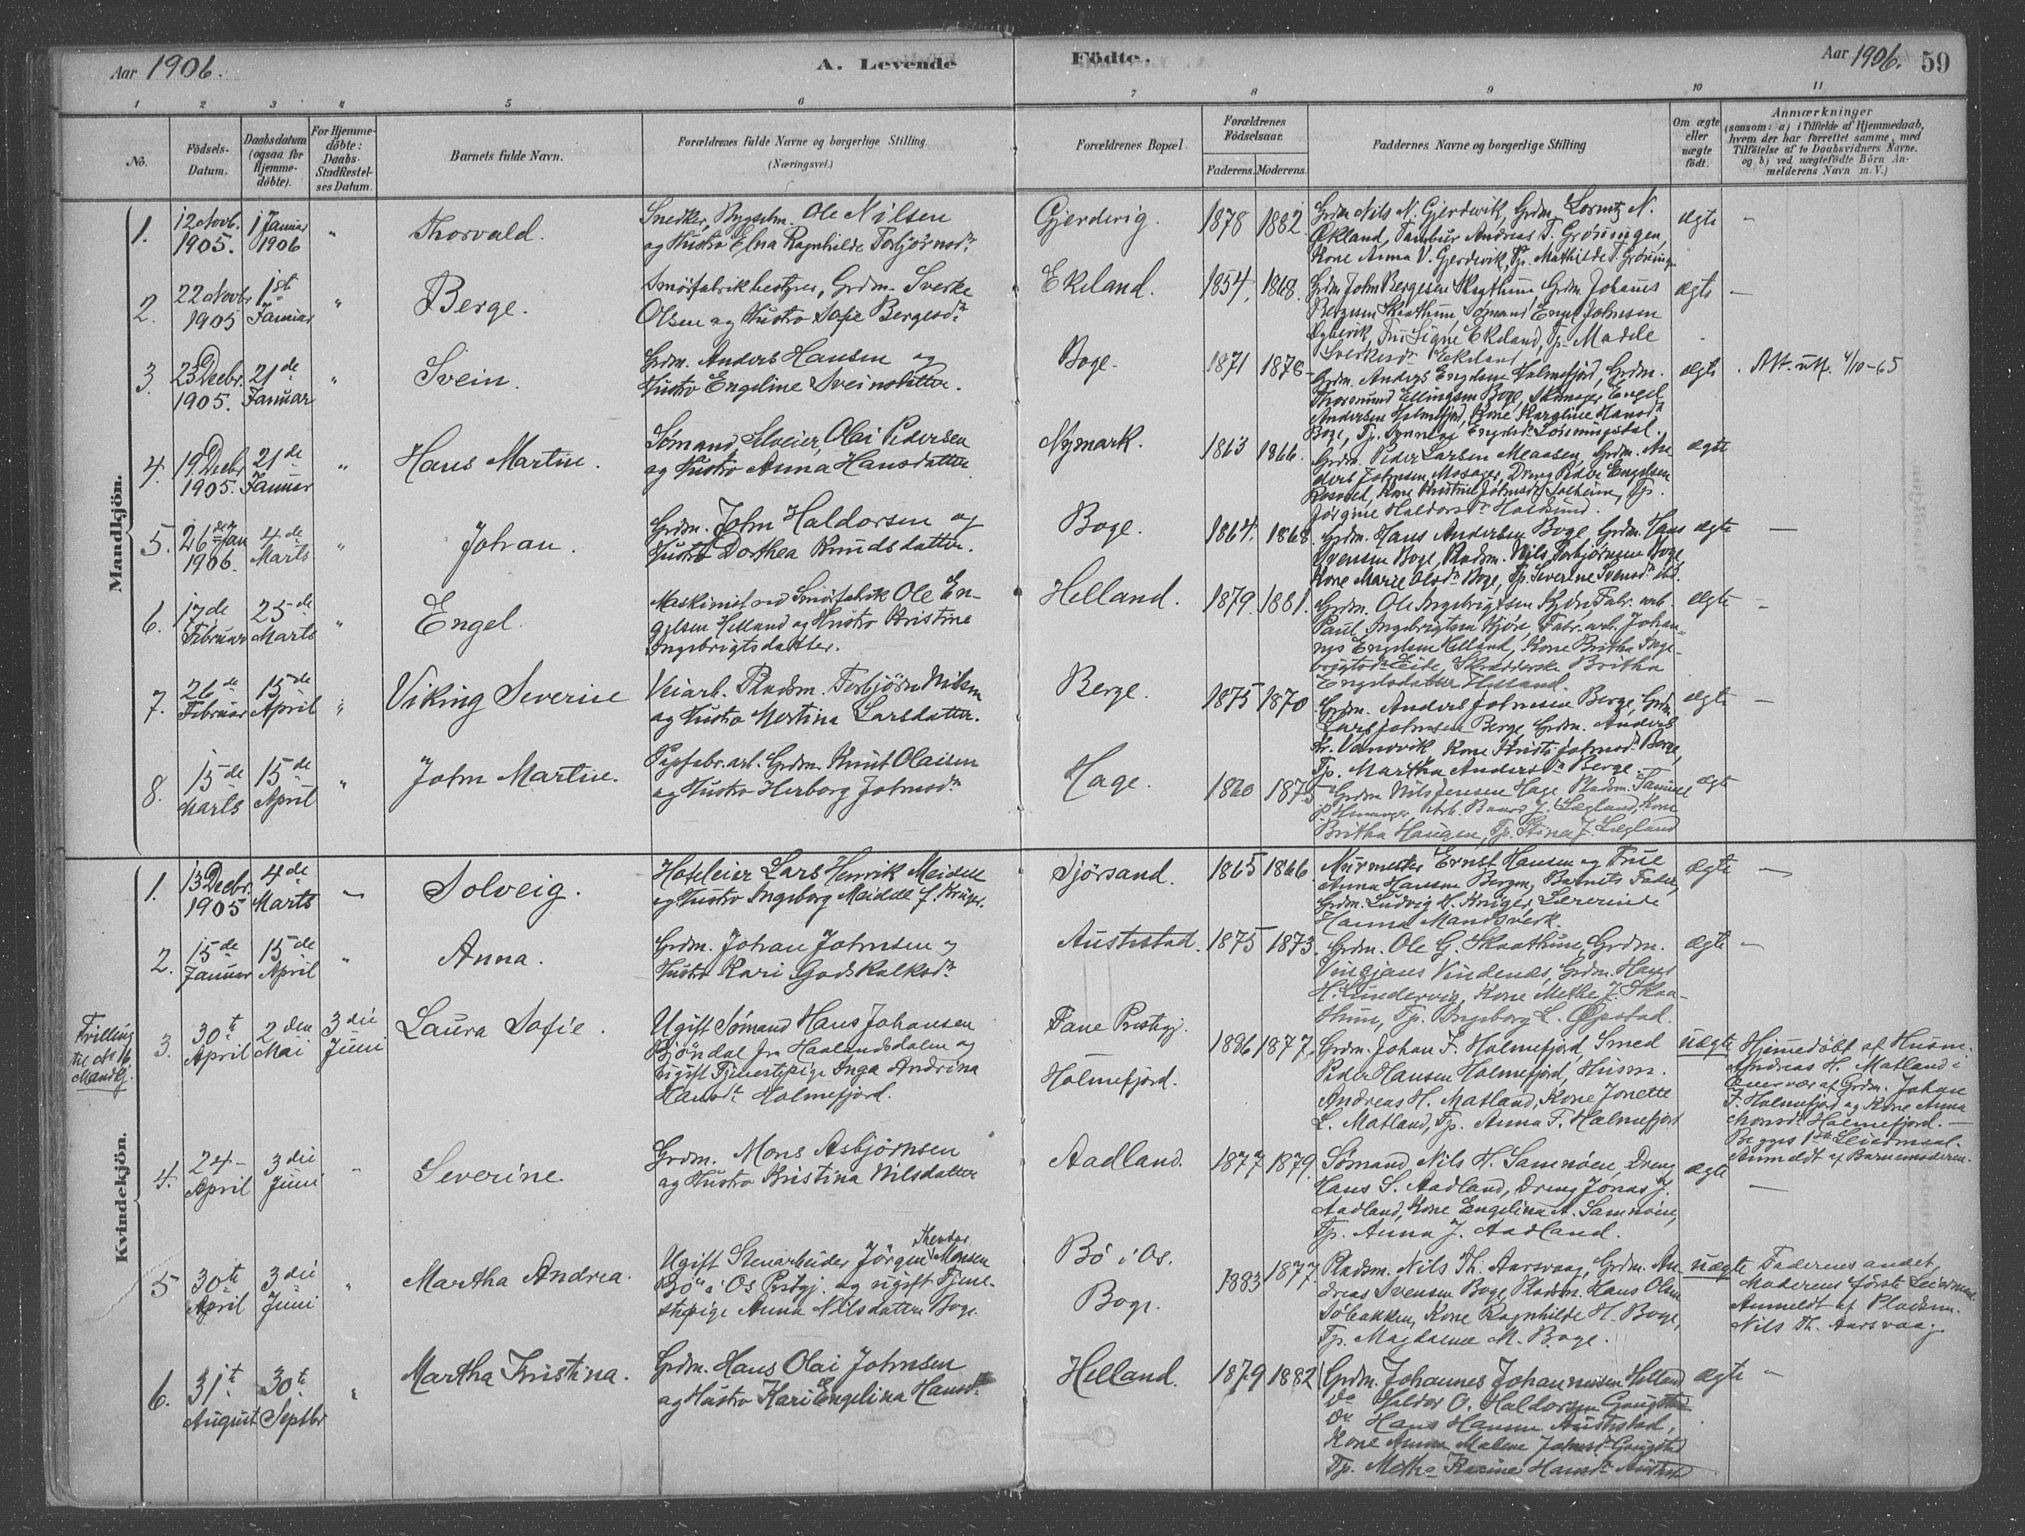 Aar 1906.
A. Levende
Födte.
Aar 1906.
59
1 2 3 4 5 6 7 8 9 10 11
No.
Födsels-
Datum.
Daabsdatum
(ogsaa for
Hjemme-
döbte).
For Hjemme-
döbte:
Daabs-
Stadfestel-
ses Datum.
Barnets fulde Navn.
Forældrenes fulde Navne og borgerlige Stilling
(Næringsvei.)
Forældrenes Bopæl.
Forældrenes
Födselsaar.
Faderens. Moderens.
Faddernes Navne og borgerlige Stilling
Om ægte
eller
uægte
födt.
Anmærkninger
(saasom: a) i Tilfælde af Hjemmedaab,
hvem der har forrettet samme, med
Tilföielse af to Daabsvidners Navne.
og b) ved uægtefödte Börn An-
melderens Navn m. V.)
Mandkjön.
1.
12 Novb.
1905.
1 Januar
1906
"
Thorvald.
Snedker, Bygselm. Ole Nilsen
og Hustro Elna Ragnhilde Torbjørnsdr
Gjerdevig.
1878 1882.
Grdm Nils N. Gjerdevik, Grdm. Lorentz N.
Økland, Tambur Andreas T. Grønningen,
Kone Anna V. Gjerdevik, Tp. Mathilde T. Grønning
ægte
2.
22 Novbr
1905
1ste
Januar
"
Berge.
Smörfabrikbestyrer, Grdm. Sverke
Olsen og Hustro Sofie Bergesdr
Ekeland.
1854. 1868.
Grdm John Bergesen Skathum Grdm. Johans
Bergesen Skaathum, Sømand Engel Johnsen
Fru Signe Ekeland, Tp. Madele
Sverkesdr Ekeland
ægte
3.
23 Decbr.
1905.
21de
Januar
"
Svein.
Grdm. Anders Hansen og
Hustro Engeline Sveinsdatter.
Boge.
1871 1878
Grdm. Anders Engelsen Holmefjord, Grdm.
Thormund Ellingsen Boge, Engel
Andersen Holmefjord, Kone Karoline Hansdr
Boge, Tp.
ægte
Att. utf. 4/10-65
4.
19 Decbr
1905.
21de
Januar
"
Hans Martin.
Sømand Olai Pedersen
og Hustro Anna Hansdatter
Nymark.
1863 1866.
Grdm. Peder Larsen Grdm. An-
ders Johnsen Mosager, Dreng Peder Engelsen
Kone Kristine Johnsdr Solheim, Tp.
Jørgine Haldorsdr
ægte
5.
26de Jan
1906.
4de
Marts
"
Johan.
Grdm. John Haldorsen og
Hustro Dorthea Knudsdatter.
Boge.
1864. 1868.
Grdm. Hans Andersen Boge Grdm. Hans
Svensen Boge, Pladsm. Nils Torbjørnsen Boge,
Kone Marie Olsdr Boge, Tp. Severine Svensdr ibd.
ægte
6.
17de
Februar
25de
Marts
"
Engel.
Maskinist ved Smörfabrik Ole En-
gelsen Helland og Hustro Kristine
Ingebrigtsdatter.
Helland.
1879. 1881.
Grdm. Ole Ingebrigtsen Fabr. arb.
Paul Ingebrigtsen Fabr. arb. Johan-
nes Engelsen Helland, Kone Britha Inge-
brigtsdr Eide, Skrædderske Britha
Engelsdatter Helland.
ægte
7.
26de
Februar
15de
April
"
Viking Severin
Veiarb. Pladsm. Torbjørn Nilsen
og Hustro Mertina Larsdatter.
Berge.
1875 1870
Grdm. Anders Johnsen Berge, Grdm
Lars Johnsen Berge Grdm. Anders
Kr. Vandvik Kone Kristi Johnsdr Berge,
Tp. Martha Andersdr Berge
ægte
8.
15de
Marts
15de
April
"
John Martin.
Papfabr. arb. Grdm. Knut Olaisen
og Hustro Herborg Johnsdr
Hage.
1860 1875
Grdm Nils Jensen Hage Pladsm. Samuel
Arb. Baard J. Lægland, Kone
Britha Haugen, Tp. Stina J. Lægland
ægte
Kvindekjön.
1.
13 Decbr.
1905
4de
Marts
Solveig.
Hoteleier Lars Henrik Meidell
og Hustro Ingeborg Meidell f. Krüger.
Sjörsand.
1865 1866.
Murmester Ernst Hansen og Frue
Anna Hansen Bergen, Barnets Fader,
Grdm. Ludvig H. Krüger Lærerinde
Hanna Mandsverk.
ægte
2.
15de
Januar
15de
April
"
Anna.
Grdm. Johan Johnsen og
Hustro Kari Godskalksdr
Austestad.
1875 1873.
Grdm. Ole G. Skaathun, Grdm.
Vingjans Vindenes, Grdm. Hans
H. Lundervig, Kone Methe J. Skaa-
thun, Tp. Ingeborg L. Øpstad.
ægte
Trilling
til No 16
Mandkj.
3.
30te
April
2den
Mai
3die
Juni
Laura Sofie.
Ugift Sømand Hans Johansen
Bjöndal fra Haalandsdalen og
ugift Tjenestepige Inga Andrina
Hansdr Holmefjord.
Fane Prestegj.
Holmefjord.
1896 1877.
Grdm. Johan F. Holmefjord, Smed
Peder Hansen Holmefjord, Husm.
Andreas H. Matland, Kone Jonette
L. Matland, Tp. Anna F. Holmefjord
uægte
Hjemmedöbt af Husm.
Andreas H. Matland i
Overvær af Grdm. Johan
F. Holmefjord og Kone Anna
Monsdr Holmefjord.
Begges 1ste Leiermaal.
Anmeldt af Barnemoderen.
4.
24
April
3die
Juni
"
Severine.
Grdm. Mons Asbjørnsen
og Hustro Kristina Nilsdatter
Aadland.
1877 1879.
Sømand, Nils H. Samnøen, Dreng
Hans S. Aadland, Dreng Jonas J.
Aadland, Kone Engelina A. Samnøen,
Tp. Anna J. Aadland.
ægte
5
30te
April
3die
Juni
"
Martha Andrea.
Theodor
Ugift Stenarbeider Jörgen Monsen
Bö i Os Prestgj. og ugift Tjene-
stepige Anna Nilsdatter Boge.
Bö i Os.
Boge.
1883 1877
Pladsm. Nils Th. Aarsvaag, Grdm. An-
dreas Svensen Boge Pladsm. Hans Olsen
Söbakken, Kone Ragnhilde H. Boge,
Tp. Magdalena M. Boge.
uægte
Faderens andet,
Moderens först Leiermaal
Anmeldt af Pladsm.
Nils Th. Aarsvaag.
6.
31te
August
30te
Septbr
"
Martha Kristina.
Grdm. Hans Olai Johnsen
og Hustro Kari Engelina Hansdr
Helland.
1879 1882
Grdm. Johannes Johannessen Helland
Do Haldor O. Haldorsen Gaugstad
Do Hans Hansen Austestad,
Kone Anna Malene Johnsdr Gaugstad
Tp. Methe Karine Hansdr Austestad
ægte